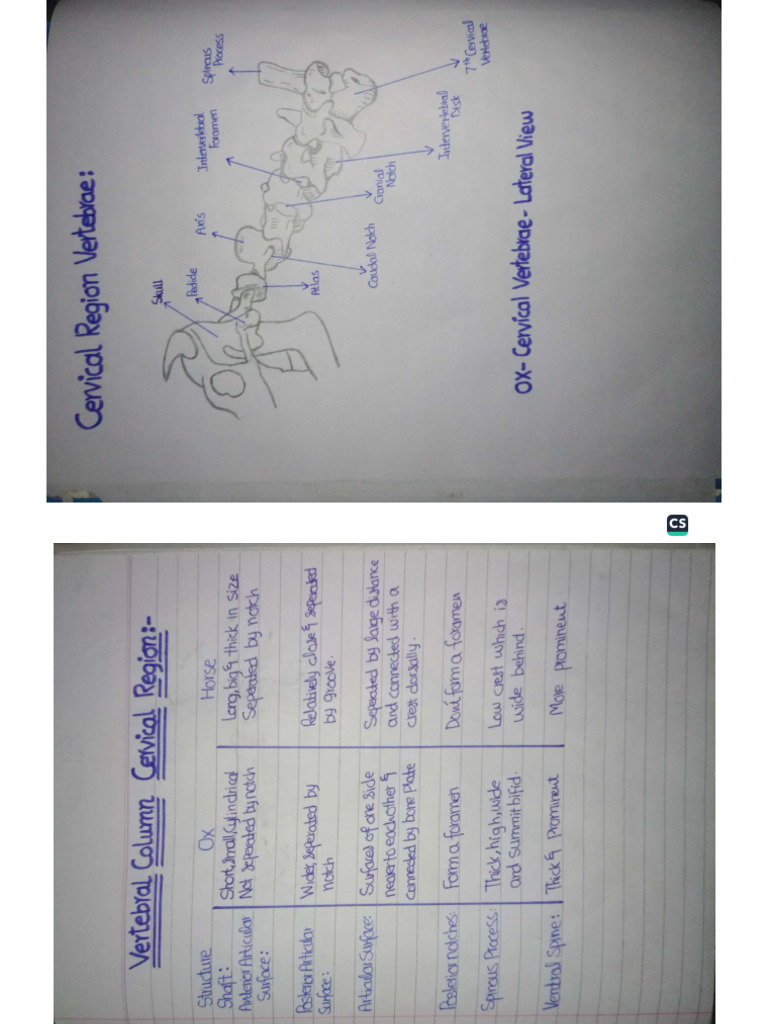 Cervical Region Vertebrae:
Skull
Pedicle
Axis
Intervertebral
Foramen
Spinous
Process
Atlas
Caudal Notch
Cranial
Notch
Intervertebral
Disk
7th Cervical
Vertebrae
OX- Cervical Vertebrae- Lateral View
CS
Vertebral Column Cervical Region:-
Structure Ox Horse
Shaft: Short, Small, Cylindrical Long, big & thick in size
Anterior Articular Not seperated by notch Seperated by notch
Surface:
Posterior Articular Wider, seperated by Relatively close & seperated
Surface: notch by groove.
Articular Surface: Surfaces of one side Seperated by large distance
nearer to eachother & and connected with a
connected by bone Plate crest dorsally.
Posterior notches: Form a foramen Don't form a foramen
Spinous Process: Thick, high, wide Low crest which is
and summit bifid. wide behind.
Ventral Spine: Thick & Prominent More prominent.